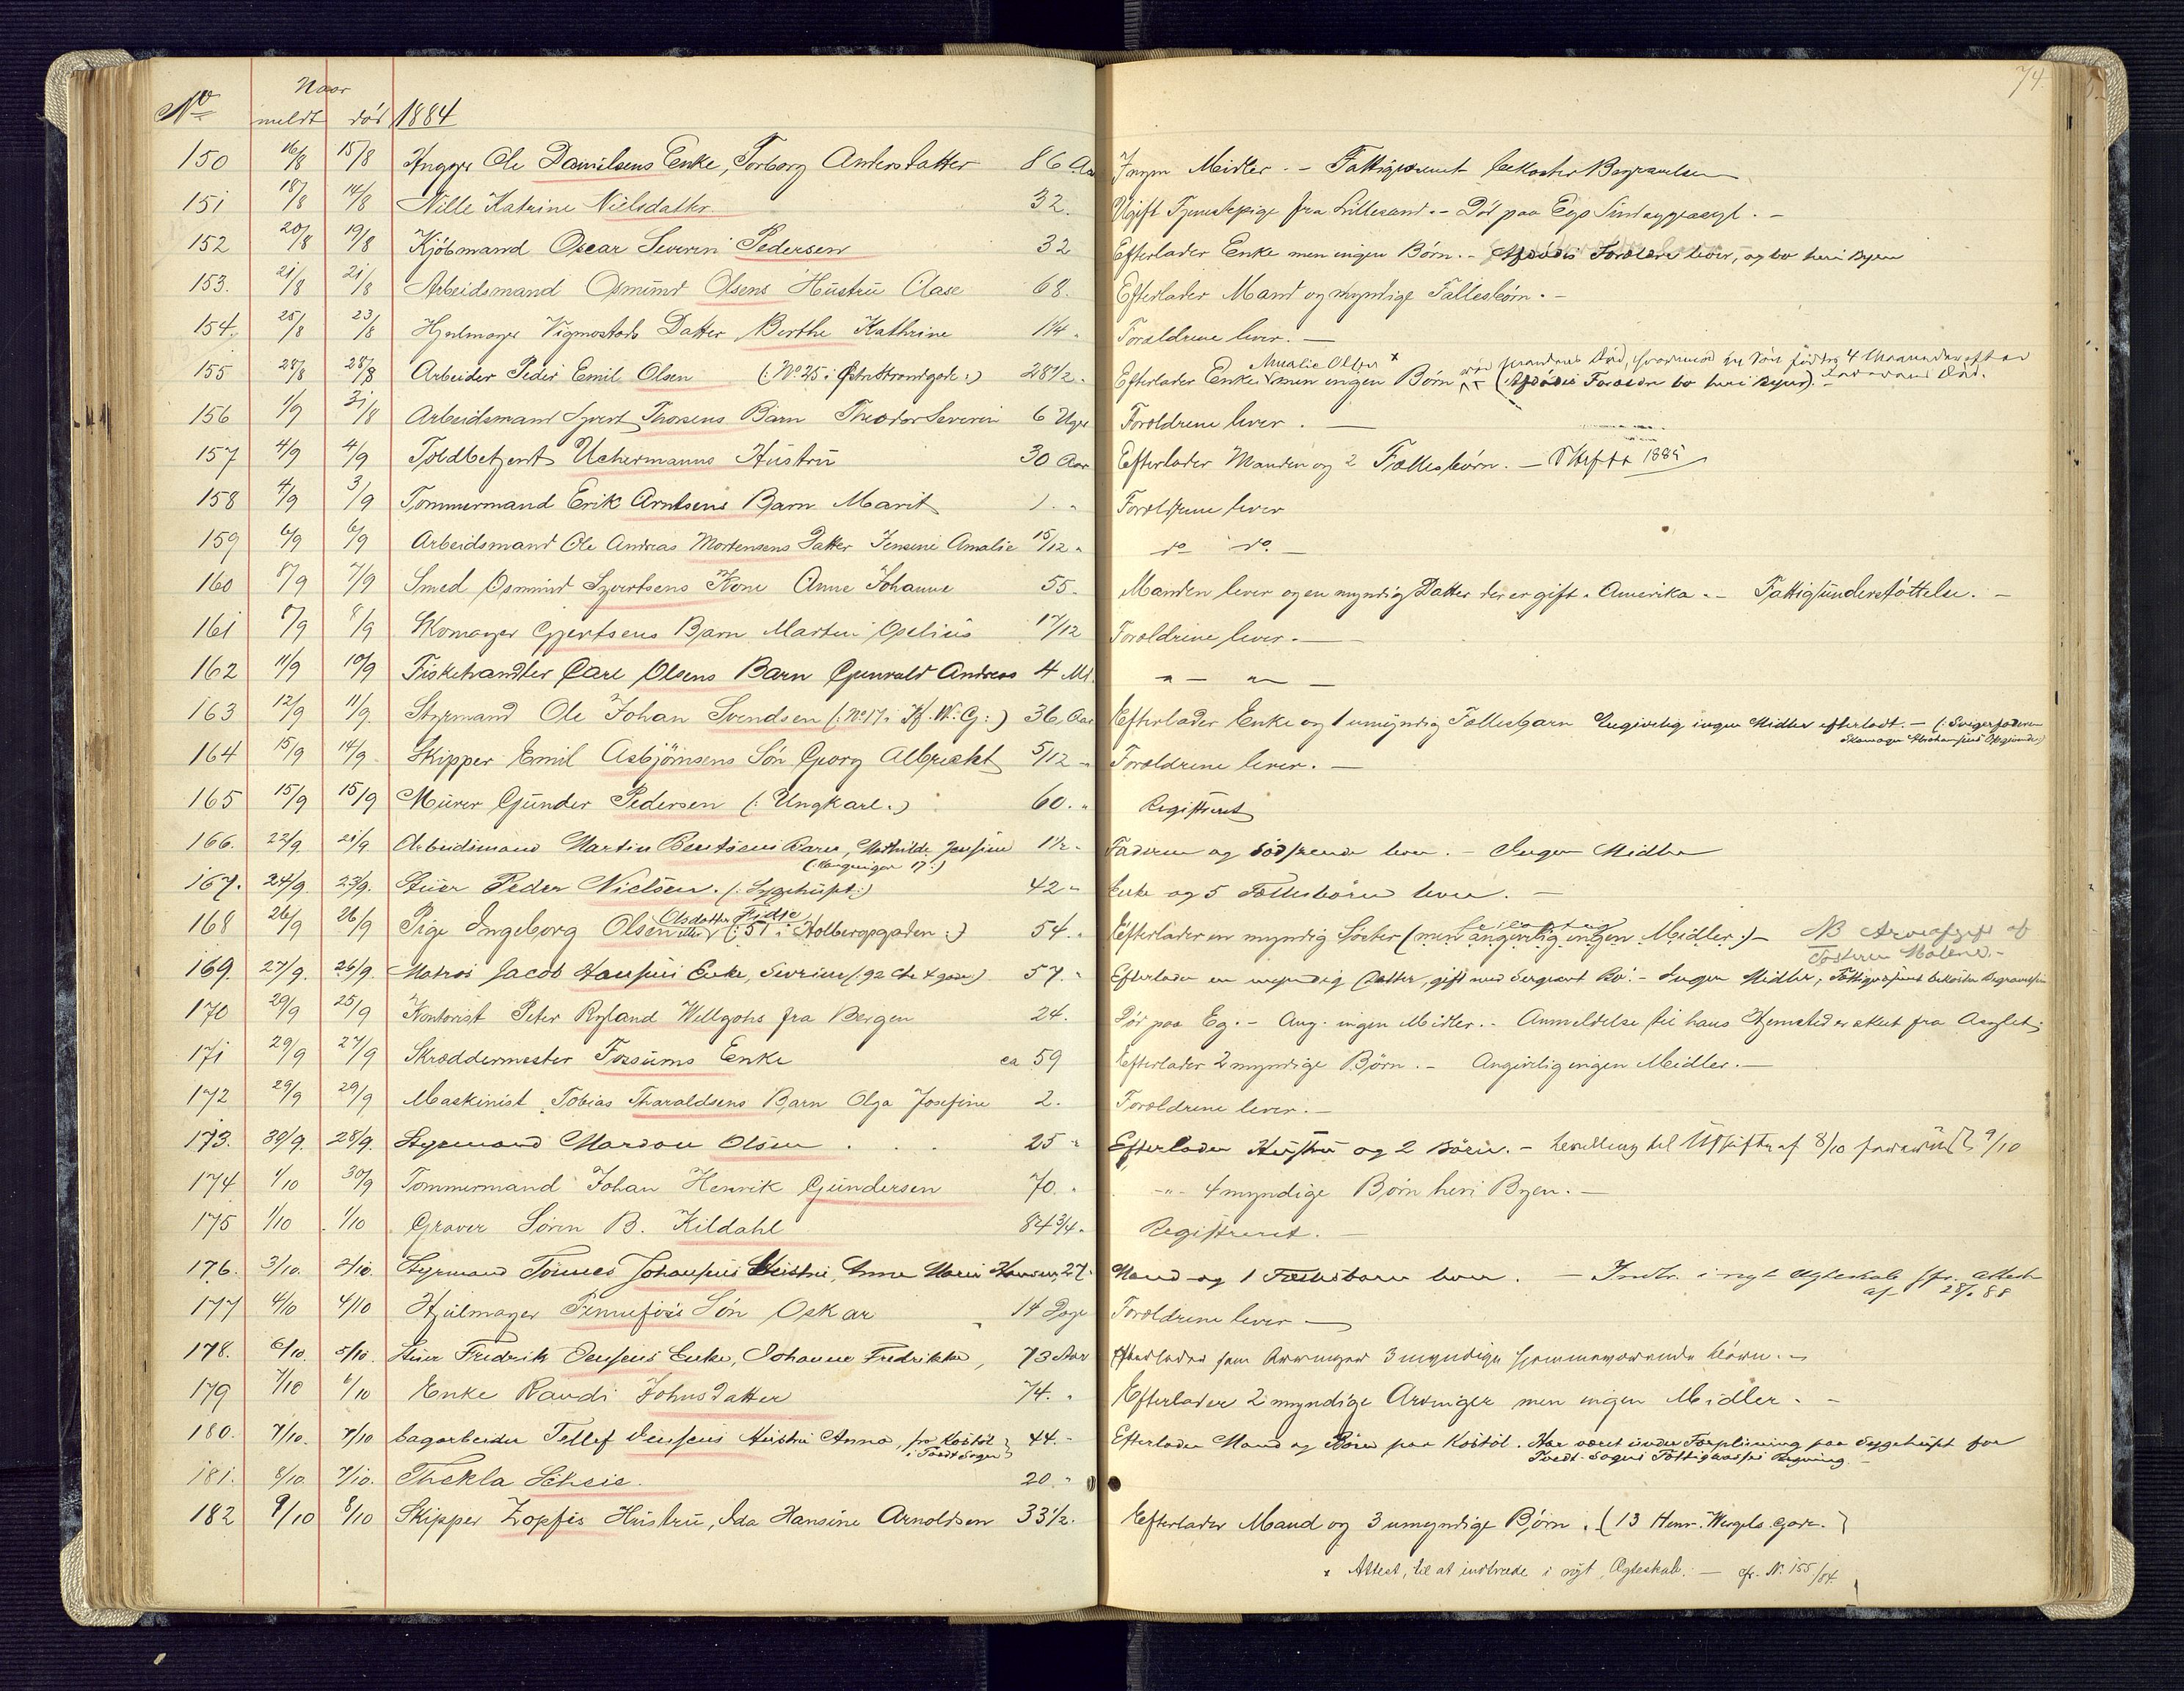 74.
Naar
No meldt død 1884
150 16/8 15/8 Ole Danielsens Enke, Torborg Andersdatter 86 Aar Ingen Midler. - Fattigvæsenet bekoster Begravelsen
151 18/8 14/8 Nille Katrine Nielsdatter 32. Ugift Tjenestepige fra Lillesand. - Død paa Egs Sindsygeasyl. -
152 20/8 19/8 Kjöbmand Oscar Severin Pedersen 32 Efterlader Enke men ingen Börn. - Afdödes Forældre lever, og bo her i Byen
153. 21/8 21/8 Arbeidsmand Osmund Olsens Hustru Aase 68. Efterlader Mand og myndige Fællesbörn. -
154. 25/8 23/8 Hjulmager Vigmostads Datter Berthe Kathrine 1 1/4 " Forældrene lever. -
Amalie Olsen x
155 28/8 28/8 Arbeider Peder Emil Olsen (: No 25 i Østre Strandgade :) 28 1/2 " Efterlader Enke men ingen Börn (Afdödes Forældre bo her i Byen).
156 1/9 31/8 Arbeidsmand Syvert Thorsens Barn Theodor Severin 6 Uger Forældrene lever. -
157 4/9 4/9 Toldbetjent Uchermanns Hustru 30 Aar Efterlader Manden og 2 Fællesbörn. - Skifte 1885
158 4/9 3/9 Tömmermand Erik Arntsens Barn Marit 1. " Forældrene lever
159 6/9 6/9 Arbeidsmand Ole Andreas Mortensens Datter Jensine Amalie 15/12 " do do. -
160 8/9 7/9 Smed Osmund Syvertsens Kone Anne Johanne 55. Manden lever og en myndig Datter der er gift i Amerika. - Fattigunderstöttelse. -
161 8/9 8/9 Skomager Gjertsens Barn Martin Oselius 17/12 Forældrene lever. -
162 11/9 10/9 Fiskehandler Carl Olsens Barn Gunvald Andreas 4 Md. " - " -
163 12/9 11/9 Styrmand Ole Johan Svendsen (: No 17 i H. W. G :) 36 Aar Efterlader Enke og 1 umyndig Fællesbarn Angivelig ingen Midler efterladt. - (: Svigerfaderen
Skomager Abrahamsens Opgivende :)
164 15/9 14/9 Skipper Emil Asbjörnsens Sön Georg Albrecht 5/12 " Forældrene lever. -
165 15/9 15/9 Murer Gunder Pedersen (: Ungkarl :) 60. " Registreret
166. 22/9 21/9 Arbeidsmand Martin Bentsens Barn, Mathilde Jensine 1 1/2 " Faderen og Södskende lever. - Ingen Midler
167. 24/9. 23/9. Stuer Peder Nielsen. (: Sygehuset :) 42 " Enke og 5 Fællesbörn lever. -
Olsdatter Fidje
168 26/9 26/9 Pige Ingeborg Olsen eller (: 51 i Holbergsgaden :) 54. " Efterlader en myndig Söster (men angivelig ingen Midler :) - NB Arveafgift af
Søsteren Malene. -
169. 27/9. 26/9. Matros Jacob Hansens Enke, Severine (92 gade) 57. " Efterlader en myndig Datter, gift med Sergeant Bo. - Ingen Midler, Fattigvæsenet bekoster Begravelsen
170 29/9 25/9 Kontorist Peter Ryland Wellgohs fra Bergen 24. Död paa Eg. - Ang. ingen Midler. - Anmeldelse til hans Hjemsted er skeet fra Asylet.
171 29/9 27/9 Skræddermester Fossums Enke ca 59 Efterlader 2 myndige Börn. - Angivelig ingen Midler. -
172 29/9 29/9 Maskinist Tobias Tharaldsens Barn Olga Josefine 2. Forældrene lever. -
173. 30/9. 28/9. Styrmand Mardon Olsen 25 " Efterlader Hustru og 2 Börn. - Bevilling til Uskifte af 8/10 9/10
174 1/10 30/9 Tömmermand Johan Henrik Gundersen 70. " - " - 4 myndige Börn her i Byen. -
175 1/10 1/10 Graver Sören B. Kildahl 84 3/4. Registreret. -
176. 3/10. 2/10. Styrmand Tönnes Johansens Hustru, Anne Marie Hansen, 27. Mand og 1 Fællesbarn lever. - Indtr. i nyt Ægteskab ifr. Attest
177 4/10 4/10 Hjulmager Sön Oskar 14 Dage Forældrene lever -
178. 6/10. 5/10. Stuer Fredrik Jensens Enke, Johanne Fredrikke, 73 Aar Efterlader som Arvinger 3 myndige hjemmeværende Börn. -
179 7/10 6/10 Enke Randi Johnsdatter 74. " Efterlader 2 myndige Arvinger men ingen Midler. -
180. 7/10. 7/10 Sagarbeider Tellef Jensens Hustru Anna, fra Kostöl i Tveit Sogn 44. - Efterlader Mand og Börn paa Kostöl. Har været under Forpleining paa Sygehuset for
Tveit Sogns Fattigkasses Regning. -
181. 8/10. 7/10. Thekla Scheie. 20. "
182 9/10 8/10 Skipper Zopfis Hustru, Ida Hansine Arnoldsen 33 1/2. Efterlader Mand og 3 umyndige Börn. (13 Henr. Wergels Gade.)
x Attest, til at indtræde i nyt Ægteskab. - cfr. No. 155/84.